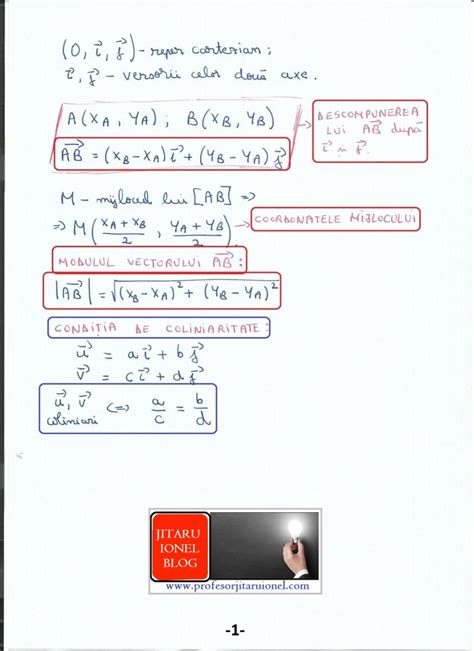 (O, i⃗, j⃗) - reper cartezian;
i⃗, j⃗ - versorii celor două axe.
A(x_A, y_A); B(x_B, y_B)
AB⃗ = (x_B - x_A) i⃗ + (y_B - y_A) j⃗
DESCOMPUNEREA
LUI AB⃗ după
i⃗ și j⃗.
M - mijlocul lui [AB] =>
=> M((x_A + x_B)/2, (y_A + y_B)/2)
COORDONATELE MIJLOCULUI
MODULUL VECTORULUI AB⃗:
|AB⃗| = √((x_B - x_A)² + (y_B - y_A)²)
CONDIȚIA DE COLINIARITATE:
u⃗ = a i⃗ + b j⃗
v⃗ = c i⃗ + d j⃗
u⃗, v⃗ <=> a/c = b/d
coliniari
JITARU
IONEL
BLOG
www.profesorjitaruionel.com
-1-